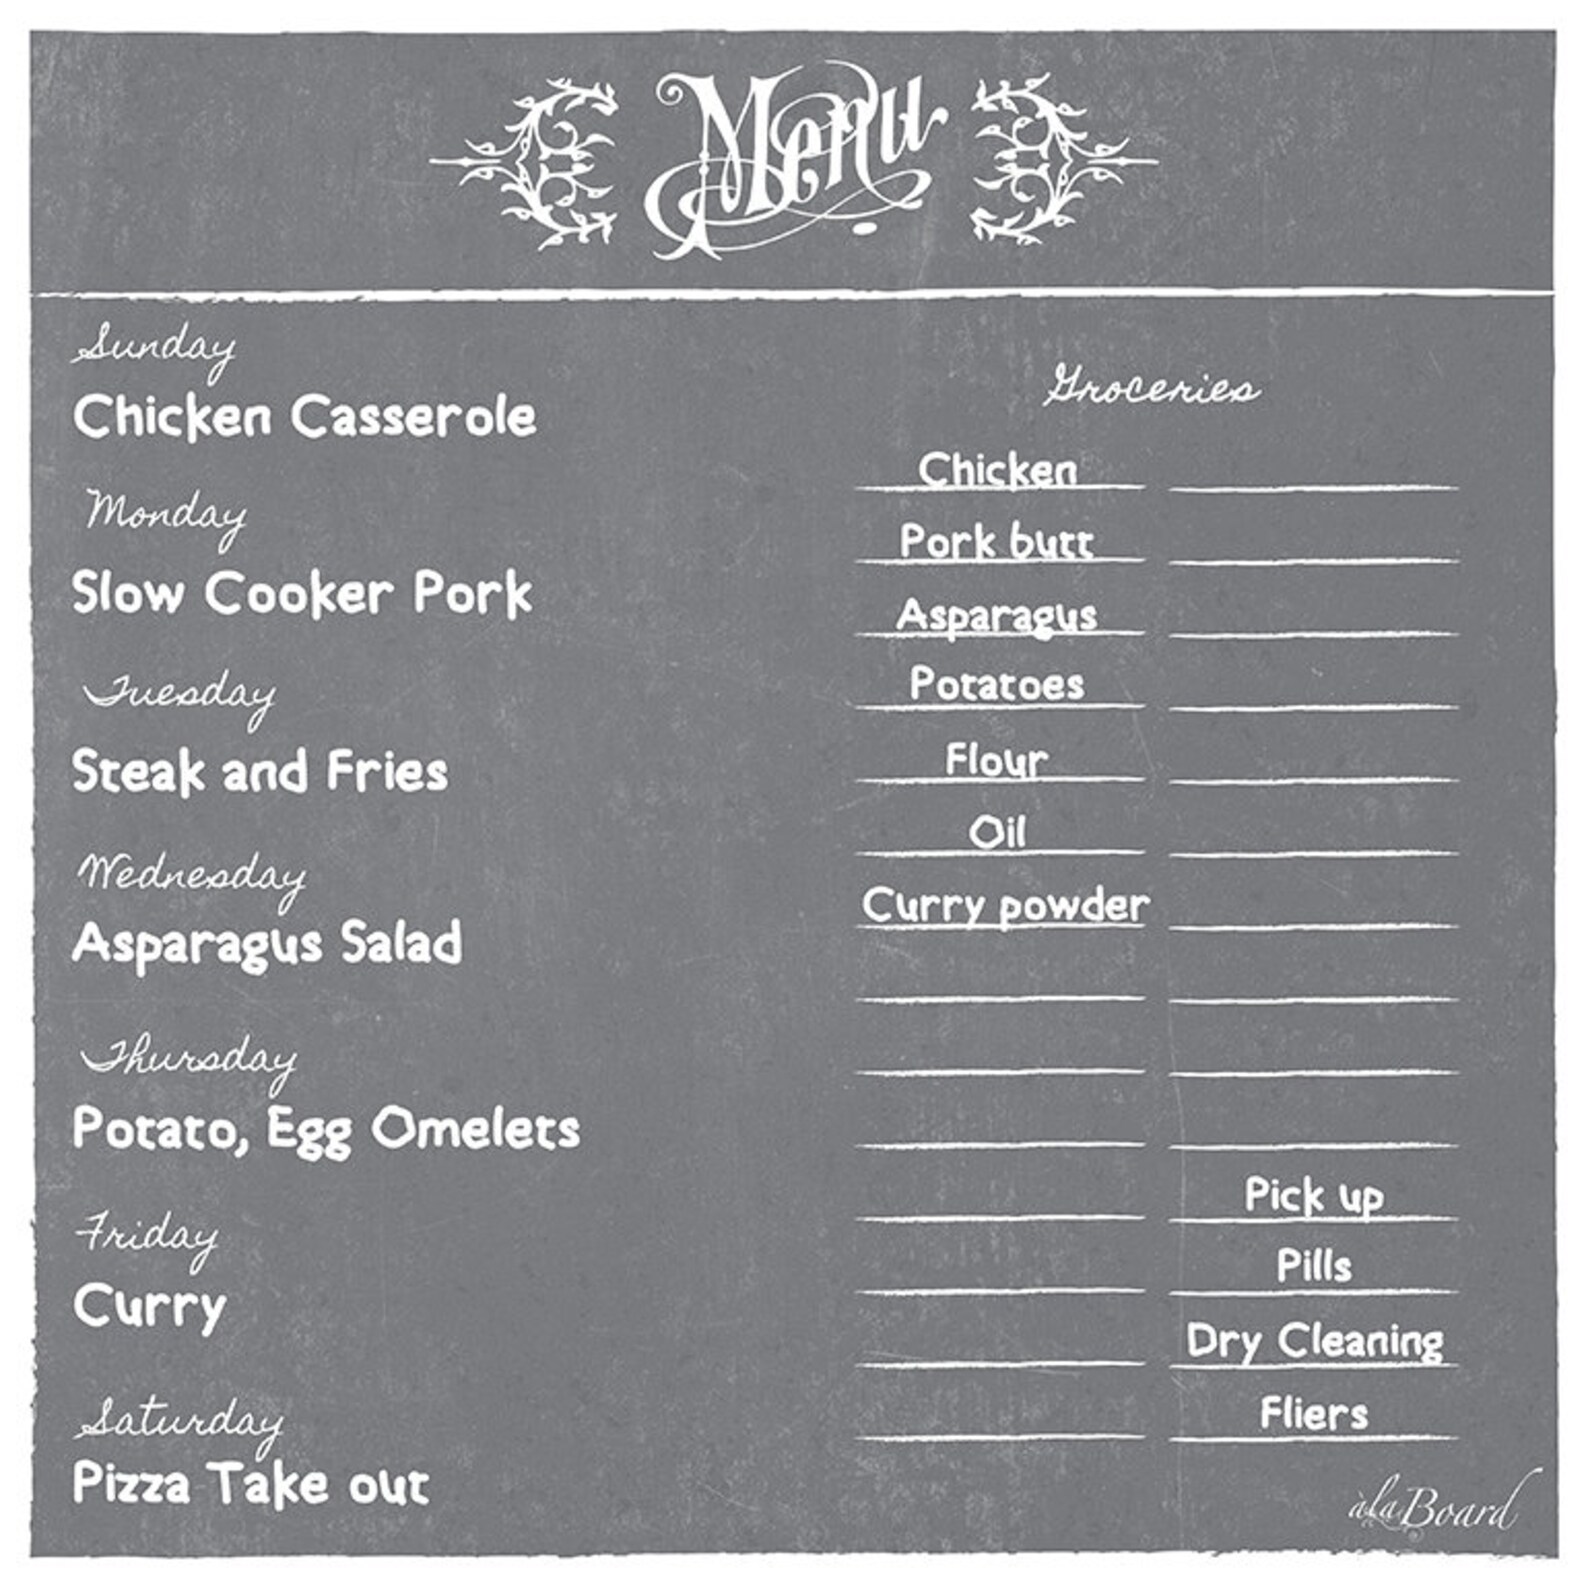 Menu
Sunday
Chicken Casserole
Monday
Slow Cooker Pork
Tuesday
Steak and Fries
Wednesday
Asparagus Salad
Thursday
Potato, Egg Omelets
Friday
Curry
Saturday
Pizza Take out
Groceries
Chicken
Pork butt
Asparagus
Potatoes
Flour
Oil
Curry powder
Pick up
Pills
Dry Cleaning
Fliers
àlaBoard